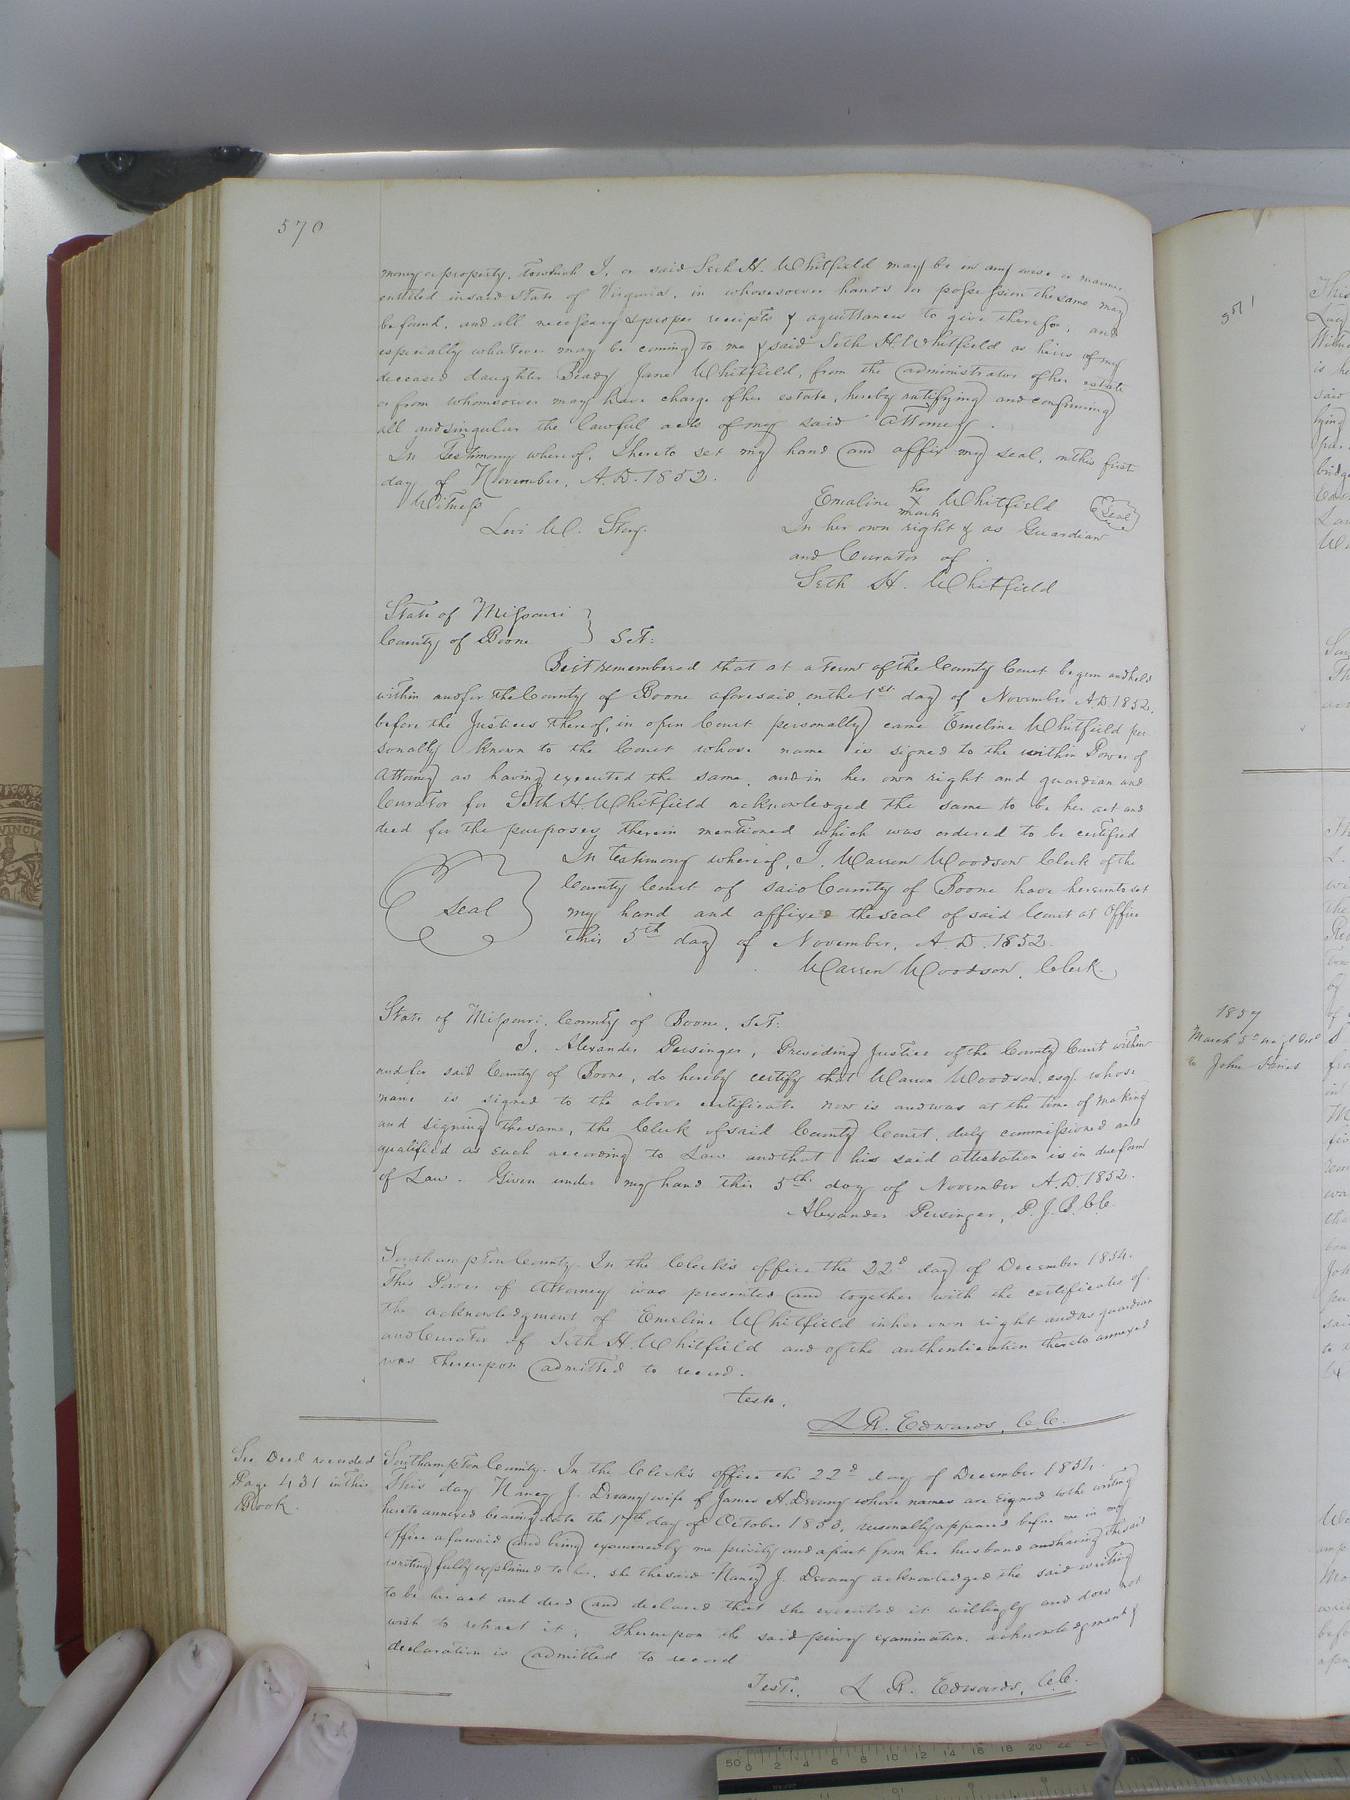 570
money or property, to which I, or said Seth H. Whitfield may be in any wise or manner
entitled in said State of Virginia, in whosesoever hands or possession the same may
be found, and all necessary & proper receipts & aquittances to give therefor, and
especially whatever may be coming to me & said Seth H. Whitfield as heirs of my
deceased daughter Jane Whitfield, from the administrator of her estate
or from whomsoever may have charge of her estate, hereby ratifying and confirming
all and singular the lawful acts of my said Attorney.
In Testimony whereof, I hereto set my hand and affix my seal, on this first
day of November, A.D. 1852.
Witness
Emeline her Whitfield Seal
X
mark
Levi W. Stay
In her own right & as Guardian
and Curator of
Seth H. Whitfield
State of Missouri
County of Boone } SCT:
Be it remembered that at a term of the County Court begun and held
within and for the County of Boone aforesaid, on the 1st day of November A.D. 1852.
before the Justices thereof, in open Court personally came Emeline Whitfield per
sonally known to the Court whose name is signed to the within Power of
Attorney as having executed the same, and in her own right and guardian and
Curator for Seth H. Whitfield acknowledged the same to be her act and
deed for the purposes therein mentioned which was ordered to be certified
In testimony whereof, I, Warren Woodson Clerk of the
County Court of said County of Boone have hereunto set
Seal
my hand and affixed the seal of said Court at Office
this 5th day of November, A.D. 1852.
Warren Woodson, Clerk.
State of Missouri, County of Boone, SCT:
I, Alexander Persinger, Presiding Justice of the County Court within
and for said County of Boone, do hereby certify that Warren Woodson, esq. whose
name is signed to the above certificate now is and was at the time of making
and signing the same, the Clerk of said County Court, duly commissioned and
qualified as such according to Law and that his said attestation is in due form
of Law. Given under my hand this 5th day of November A.D. 1852.
Alexander Persinger, P.J.B.C.C.
Southampton County. In the Clerk's office the 22d day of December 1854.
This Power of Attorney was presented and together with the certificates of
the acknowledgment of Emeline Whitfield in her own right and as guardian
and Curator of Seth H. Whitfield and of the authentication thereto annexed
was thereupon admitted to record.
Teste,
L. R. Edwards, C.C.
See Deed recorded
Page 431 in this
Book.
Southampton County. In the Clerk's office the 22d day of December 1854.
This day Nancy J. Devany wife of James H. Devany whose names are signed to the writing
hereto annexed bearing date the 17th day of October 1853, personally appeared before me in my
Office aforesaid and being examined by me privily and apart from her husband and having the said
writing fully explained to her, she the said Nancy J. Devany acknowledged the said writing
to be her act and deed and declared that she executed it willingly and does not
wish to retract it. Thereupon the said privy examination, acknowledgment &
declaration is admitted to record
Test. L R. Edwards, C.C.
571
1857
March 5th
to John